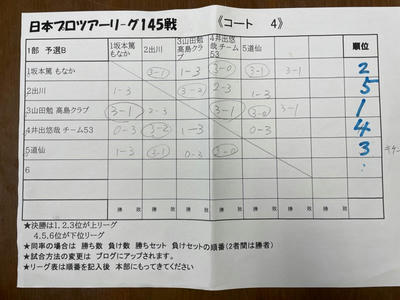 日本プロツアーリーグ145戦 《コート 4》
1部 予選B 1坂本篤 もなか 2出川 3山田勉 高島クラブ 4井出悠哉 チーム53 5道仙 順位
1坂本篤 もなか 3-1 1-3 3-0 3-1 3-1 2
2出川 1-3 3-2 2-3 1-3 5
3山田勉 高島クラブ 3-1 2-3 3-1 3-0 3-1 1
4井出悠哉 チーム53 0-3 3-2 1-3 0-3 4
5道仙 1-3 3-1 0-3 3-0 3
6
勝 敗 勝 敗 勝 敗 勝 敗 勝 敗 勝 敗
★決勝は1,2,3位が上リーグ
4,5,6位が下位リーグ
★同率の場合は 勝ち数 負け数 勝ちセット 負けセットの順番(2者間は勝者)
★試合方法の変更は ブログにアップされます。
★リーグ表は順番を記入後 本部にもってきてください